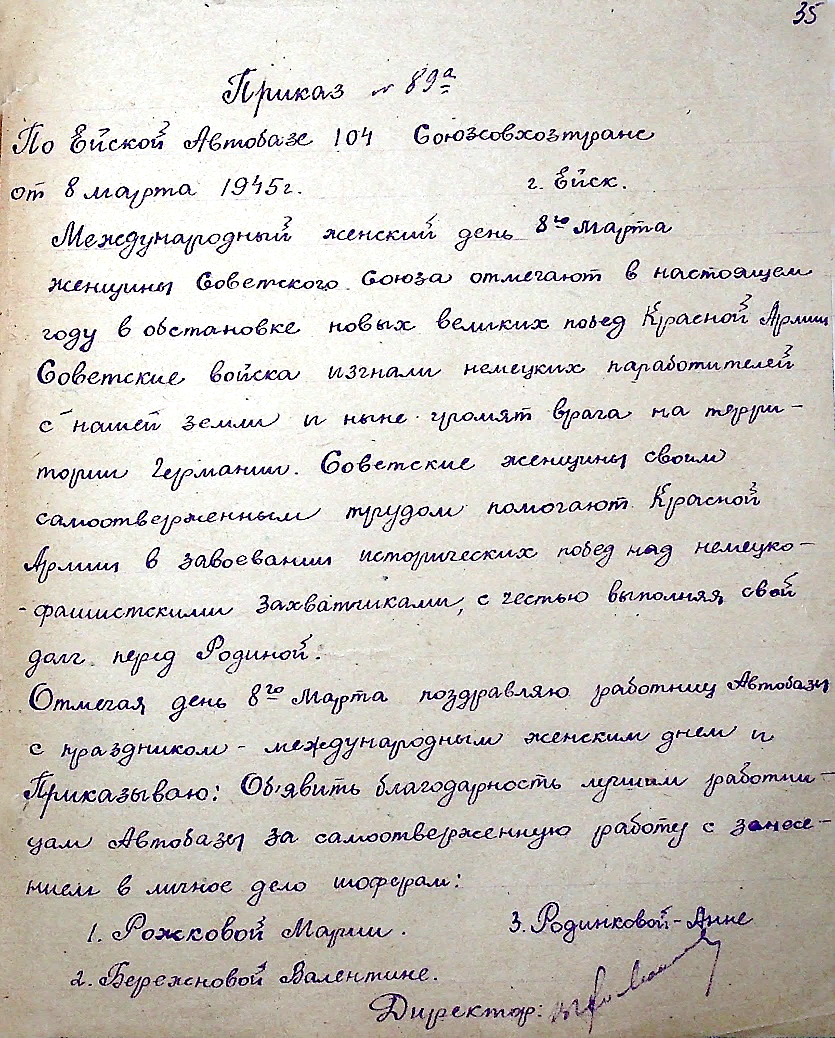 35
Приказ № 89а
По Ейской Автобазе 104 Союзсовхозтранс
от 8 марта 1945г. г. Ейск.
Международный женский день 8го Марта
женщины Советского Союза отмечают в настоящем
году в обстановке новых великих побед Красной Армии
Советские войска изгнали немецких паработителей
с нашей земли и ныне громят врага на терри-
тории Германии. Советские женщины своим
самоотверженным трудом помогают Красной
Армии в завоевании исторических побед над немецко-
-фашистскими захватчиками, с честью выполняя свой
долг перед Родиной.
Отмечая день 8го Марта поздравляю работниц Автобазы
с праздником - международным женским днем и
Приказываю: Об'явить благодарность лучшим работни-
цам Автобазы за самоотверженную работу с занесе-
нием в личное дело шоферам:
1. Рожковой Марии. 3. Родинковой-Анне
2. Бережновой Валентине.
Директор: